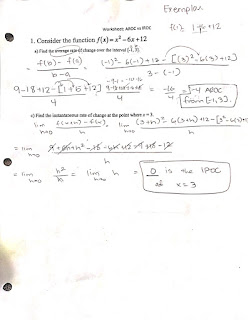 Exemplar
Worksheet: AROC vs IROC
1. Consider the function f(x) = x² - 6x + 12
a) Find the average rate of change over the interval [-1, 3].
= f(b) - f(a) / b - a = (-1)² - 6(-1) + 12 - [(3)² - 6(3) + 12] / 3 - (-1)
9 - 18 + 12 - [1 + 6 + 12] / 4 = -16 / 4 = -4 AROC
from [-1, 3].
c) Find the instantaneous rate of change at the point where x = 3.
lim h→0 f(x+h) - f(x) / h = lim h→0 (3+h)² - 6(3+h) + 12 - [3² - 6(3) +
= lim h→0 9 + 6h + h² - 18 - 6h + 12 - 9 + 18 - 12 / h
= lim h→0 h² / h = lim h→0 h = 0 is the IROC
at x = 3